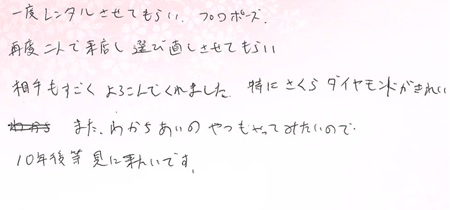 一度レンタルさせてもらい、プロポーズ、
再度二人で来店し選び直しさせてもらい
相手もすごくよろこんでくれました。特にさくらダイヤモンドがきれい
また、わかちあいのやつもやってみたいので、
10年後等見に来たいです。